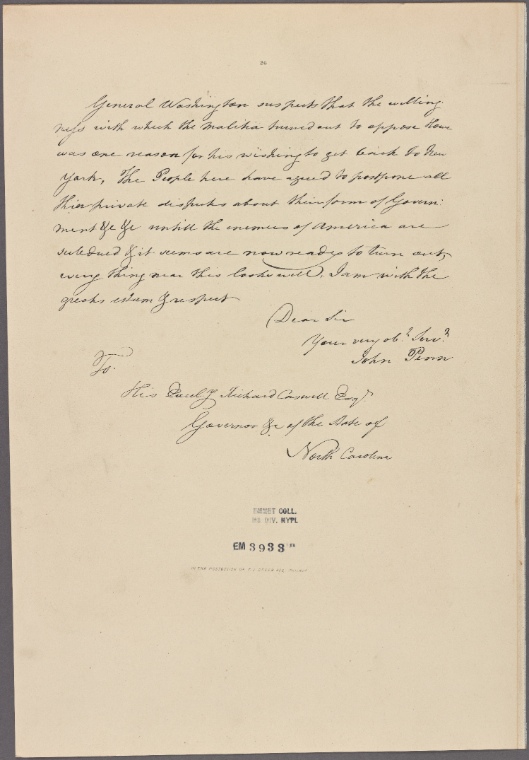 General Washington suspects that the willing
ness with which the Malitia turned out to oppose Howe
was one reason for his wishing to get back to New
York, The People here have agreed to postpone all
their private disputes about their form of Govern:
ment &c &c untill the enemies of America are
subdued & it seems are now ready to turn out,
every thing near this looks well. I am with the
greatest esteem & respect
Dear Sir
Your very obt. Servt.
John Penn
To.
His Excelly Richard Caswell Esqr
Governor &c of the State of
North Carolina
EMMET COLL.
MS. DIV. NYPL
EM 3933